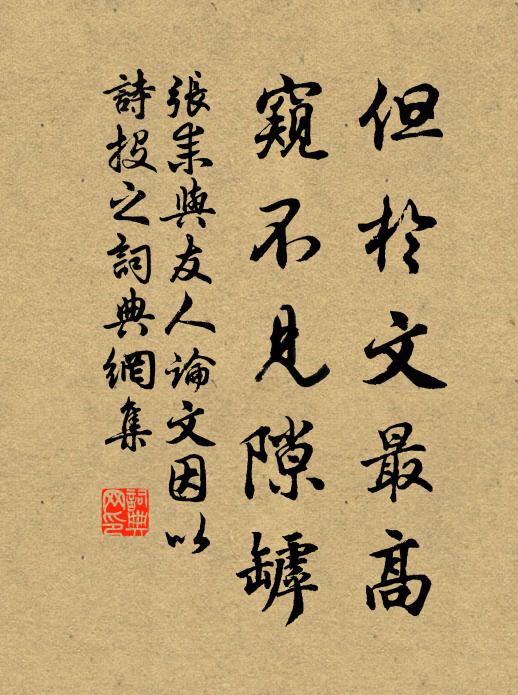 但於文最高
窺不見隙罅
張耒與友人論文因以
詩投之詞典網集
詞典
网印